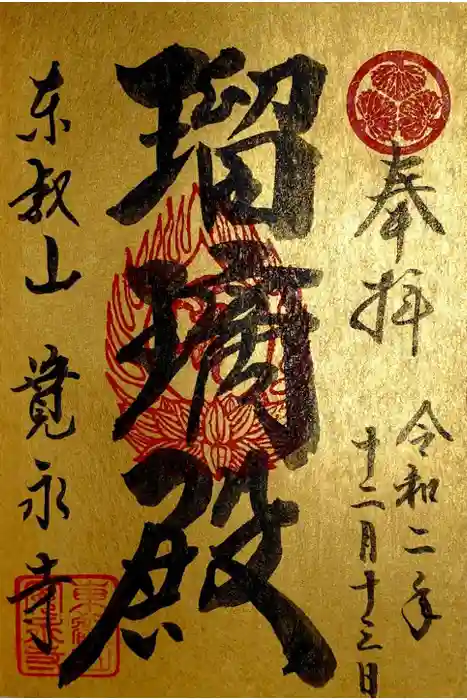 奉拝
令和二年
十二月十三日
瑠璃殿
東叡山 寛永寺